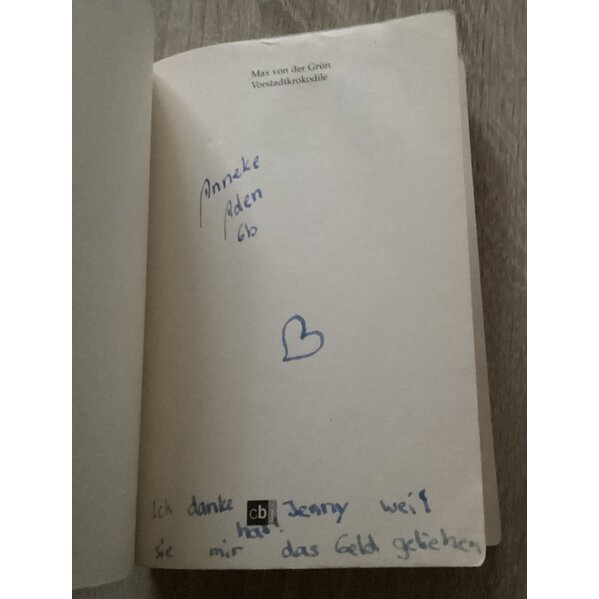 Max von der Grün
Vorstadtkrokodile
Anneke
Aden
6b
cbj
Ich danke Jenny weil
hat!
sie mir das Geld geliehen